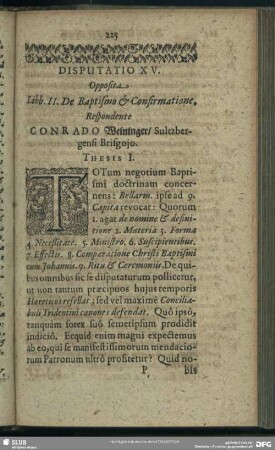 225
DISPUTATIO XV.
Opposita
Libb. II. De Baptismo & Confirmatione,
Respondente
CONRADO Weininger/ Sultzber-
gensi Brisgojo.
THESIS I.
TOTum negotium Bapti-
smi doctrinam concer-
nens: Bellarm. ipse ad 9.
Capita revocat: Quorum
1. agat de nomine & defini-
tione 2. Materia 3. Forma
4. Necessitate. 5. Ministro. 6. Suscipientibus.
7. Effectu. 8. Comparatione Christi Baptismi
cum Johannis. 9. Ritu & Ceremoniis. De qui-
bus omnibus sic se disputaturum pollicetur,
ut non tantum præcipuos hujus temporis
Hæreticos refellat; sed vel maximè Concilia-
buli Tridentini canones defendat. Quô ipsô,
tanquam forex suô semetipsum prodidit
indiciô. Ecquid enim magni expectemus
ab eo, qui se manifestissimorum mendacio-
rum Patronum ultrò profitetur? Quid no-
P bis
SLUB
DFG